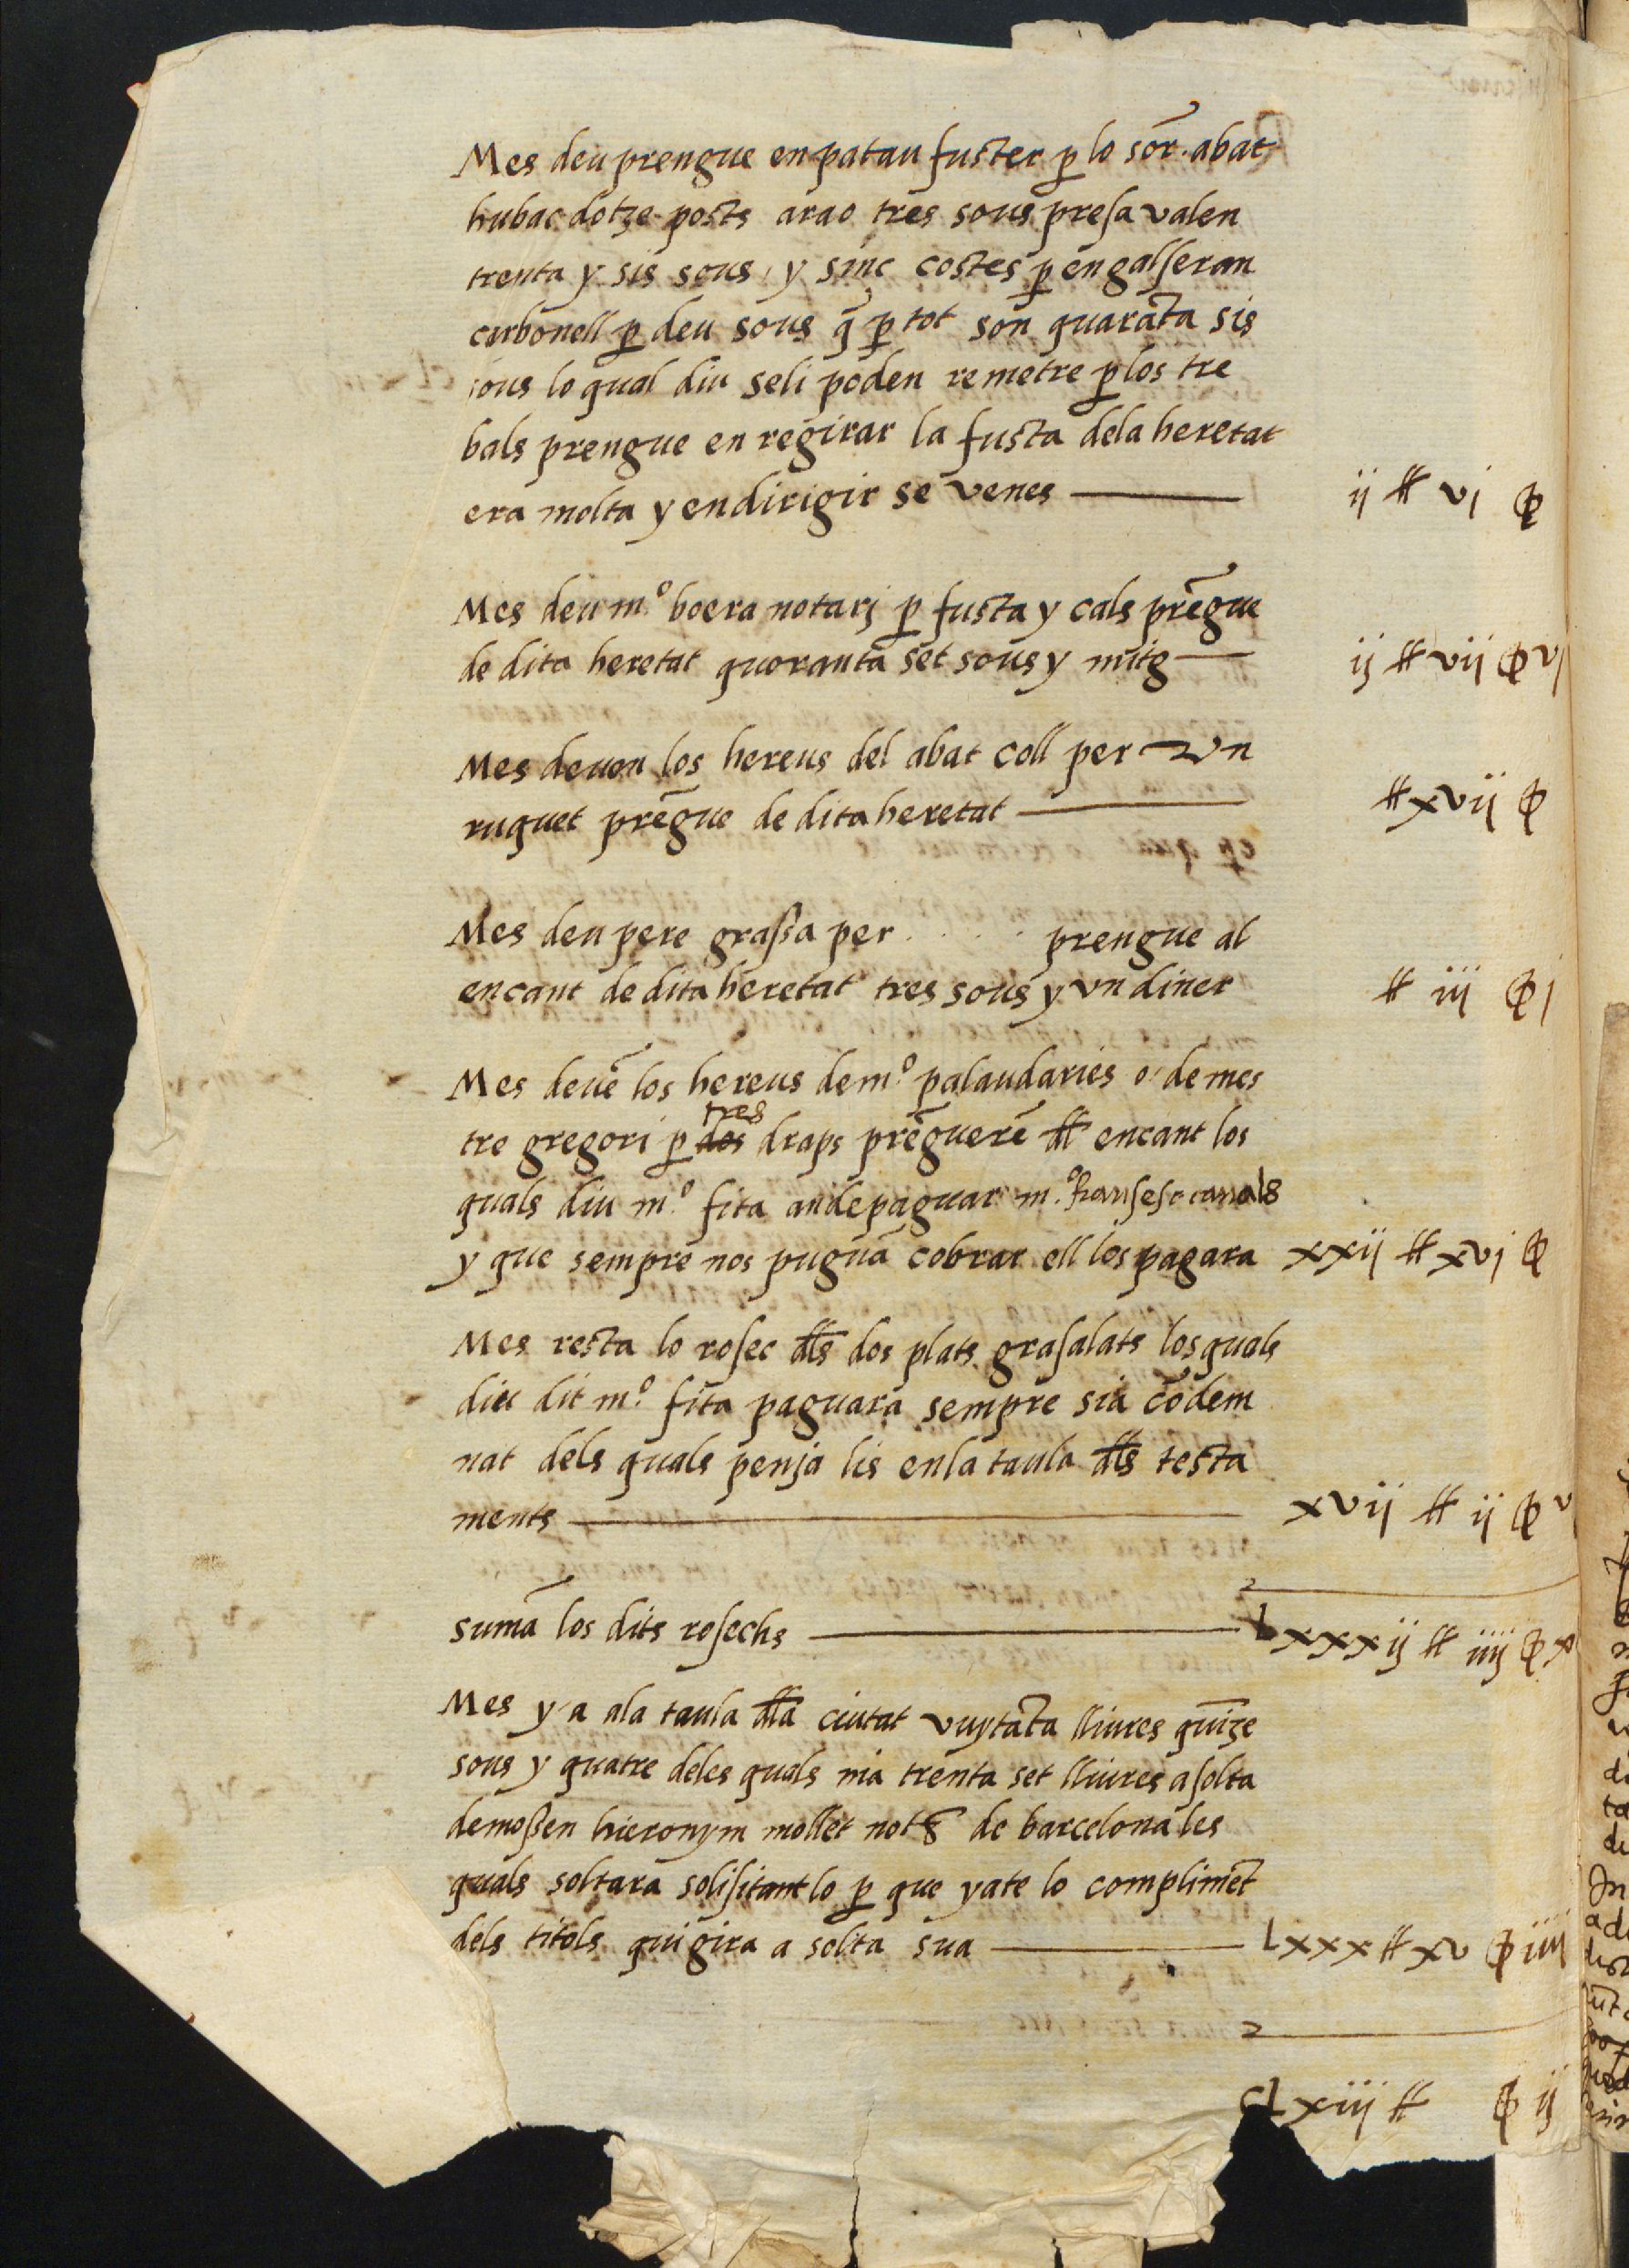 Mes deu prengue en patau fuster p̱ lo sor̄. abat
hubac dotze posts arao tres sous presa valen
trenta y sis sous, y sinc costes p̱ en galseran
carbonell p̱ deu sous q̄ p̱ tot son quarāta sis
sous lo qual diu seli poden remetre p̱ los tre
bals prengue en regirar la fusta dela heretat
era molta y en dirigir se venes — ij ₶ vj ꝑ
Mes deu m.º boera notarj p̱ fusta y cals prēgue
de dita heretat quoranta set sous y mitg — ij ₶ vij ꝑ vj
Mes deuen los hereus del abat coll per vn
ruquet prēgue de dita heretat — ₶ xvij ꝑ
Mes deu pere graßa per . . . . prengue al
encant de dita heretat tres sous y vn diner ₶ iij ꝑ j
Mes deuē los hereus de m.º palaudaries o de mes
tre gregori p̱ dos tres draps prēguerē dll encant los
quals diu m.º fita an de paguar m.º fransesc canals
y que sempre nos puguā cobrar ell los pagara xxij ₶ xvj ꝑ
Mes resta lo rosec dlls dos plats grasalats los quals
diu dit m.º fita paguara sempre sia cōdem
nat dels quals penja lis en la taula dlls testa
ments — xvij ₶ ij ꝑ v
sumā los dits rosechs — Lxxxij ₶ iiij ꝑ x
Mes y a ala taula dlla ciutat vuytāta lliures quīze
sous y quatre deles quals nia trenta set lliures a solta
de moßen hieronym mollet not̄ de barcelona les
quals soltara solisitant lo p̱ que yate lo complimēt
dels titols qui gira a solta sua — Lxxx ₶ xv ꝑ iiij
cLxiij ₶ ꝑ ij